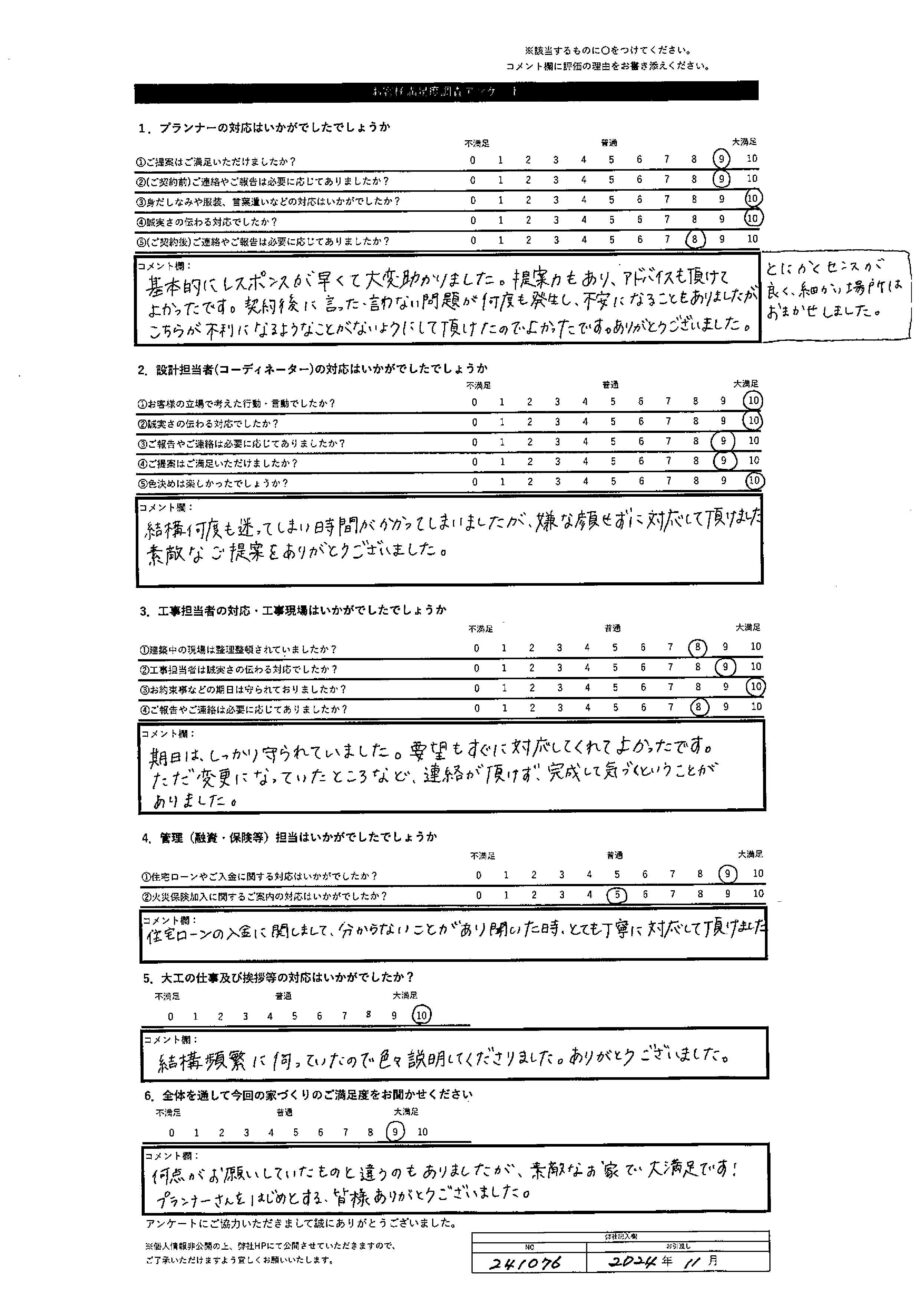 ※該当するものに〇をつけてください。
コメント欄に評価の理由をお書き添えください。
お客様満足度調査アンケート
1．プランナーの対応はいかがでしたでしょうか
不満足 普通 大満足
①ご提案はご満足いただけましたか？ 0 1 2 3 4 5 6 7 8 9 10
②(ご契約前)ご連絡やご報告は必要に応じてありましたか？ 0 1 2 3 4 5 6 7 8 9 10
③身だしなみや服装、言葉遣いなどの対応はいかがでしたか？ 0 1 2 3 4 5 6 7 8 9 10
④誠実さの伝わる対応でしたか？ 0 1 2 3 4 5 6 7 8 9 10
⑤(ご契約後)ご連絡やご報告は必要に応じてありましたか？ 0 1 2 3 4 5 6 7 8 9 10
コメント欄：
基本的にレスポンスが早くて大変助かりました。提案力もあり、アドバイスも頂けて
よかったです。契約後に言った・言わない問題が何度も発生し、不安になることもありましたが
こちらが不利になるようなことがないようにして頂けたのでよかったです。ありがとうございました。
とにかくセンスが
良く、細かい場所は
おまかせしました。
2．設計担当者(コーディネーター)の対応はいかがでしたでしょうか
不満足 普通 大満足
①お客様の立場で考えた行動・言動でしたか？ 0 1 2 3 4 5 6 7 8 9 10
②誠実さの伝わる対応でしたか？ 0 1 2 3 4 5 6 7 8 9 10
③ご報告やご連絡は必要に応じてありましたか？ 0 1 2 3 4 5 6 7 8 9 10
④ご提案はご満足いただけましたか？ 0 1 2 3 4 5 6 7 8 9 10
⑤色決めは楽しかったでしょうか？ 0 1 2 3 4 5 6 7 8 9 10
コメント欄：
結構何度も迷ってしまい時間がかかってしまいましたが、嫌な顔せずに対応して頂けました
素敵なご提案をありがとうございました。
3．工事担当者の対応・工事現場はいかがでしたでしょうか
不満足 普通 大満足
①建築中の現場は整理整頓されていましたか？ 0 1 2 3 4 5 6 7 8 9 10
②工事担当者は誠実さの伝わる対応でしたか？ 0 1 2 3 4 5 6 7 8 9 10
③お約束事などの期日は守られておりましたか？ 0 1 2 3 4 5 6 7 8 9 10
④ご報告やご連絡は必要に応じてありましたか？ 0 1 2 3 4 5 6 7 8 9 10
コメント欄：
期日は、しっかり守られていました。要望もすぐに対応してくれてよかったです。
ただ変更になっていたところなど、連絡が頂けず、完成して気づくということが
ありました。
4．管理（融資・保険等）担当はいかがでしたでしょうか
不満足 普通 大満足
①住宅ローンやご入金に関する対応はいかがでしたか？ 0 1 2 3 4 5 6 7 8 9 10
②火災保険加入に関するご案内の対応はいかがでしたか？ 0 1 2 3 4 5 6 7 8 9 10
コメント欄：
住宅ローンの入金に関しまして、分からないことがあり聞いた時、とても丁寧に対応して頂けました
5．大工の仕事及び挨拶等の対応はいかがでしたか？
不満足 普通 大満足
0 1 2 3 4 5 6 7 8 9 10
コメント欄：
結構頻繁に伺っていたので色々説明してくださりました。ありがとうございました。
6．全体を通して今回の家づくりのご満足度をお聞かせください
不満足 普通 大満足
0 1 2 3 4 5 6 7 8 9 10
コメント欄：
何点かお願いしていたものと違うのもありましたが、素敵なお家で大満足です！
プランナーさんをはじめとする、皆様ありがとうございました。
アンケートにご協力いただきまして誠にありがとうございました。
※個人情報非公開の上、弊社HPにて公開させていただきますので、
ご了承いただけますよう宜しくお願いいたします。
弊社記入欄
NO お引渡し
241076 2024年 11月